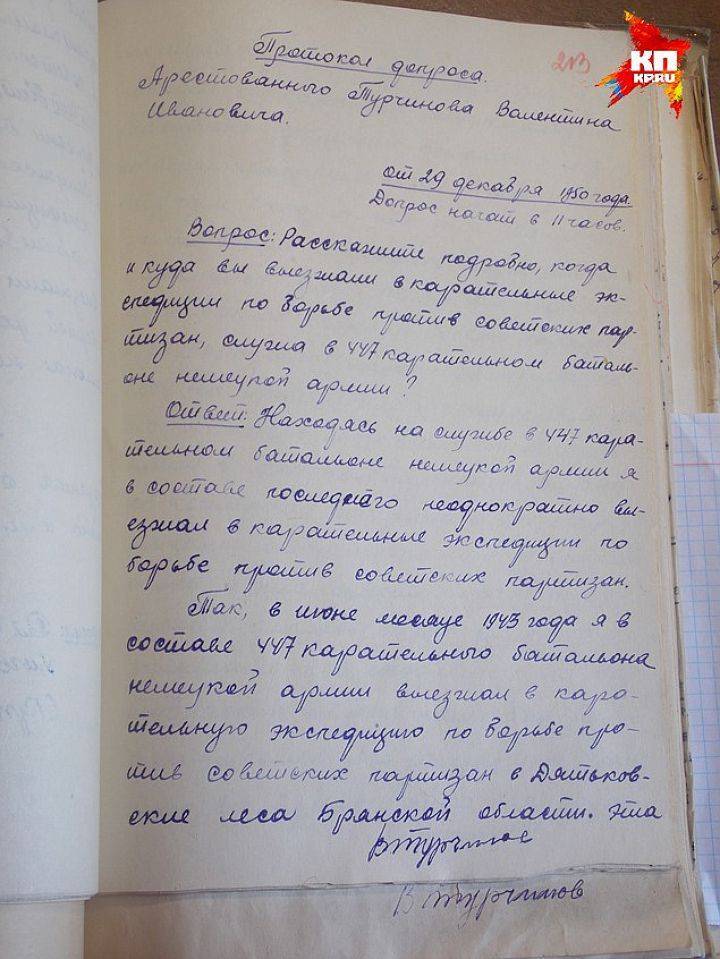 Протокол допроса.
213
КП
KP.RU
Арестованного Турчинова Валентина
Ивановича.
от 29 декабря 1950 года.
Допрос начат в 11 часов.
Вопрос: Расскажите подробно, когда
и куда вы выезжали в карательные эк-
спедиции по борьбе против советских пар-
тизан, служа в 447 карательном баталь-
оне немецкой армии?
Ответ: Находясь на службе в 447 кара-
тельном батальоне немецкой армии я
в составе последнего неоднократно вы-
езжал в карательные экспедиции по
борьбе против советских партизан.
Так, в июне месяце 1943 года я в
составе 447 карательного батальона
немецкой армии выезжал в кара-
тельную экспедицию по борьбе про-
тив советских партизан в Дятьков-
ские леса Брянской области. Эта
В Турчинов
В Турчинов